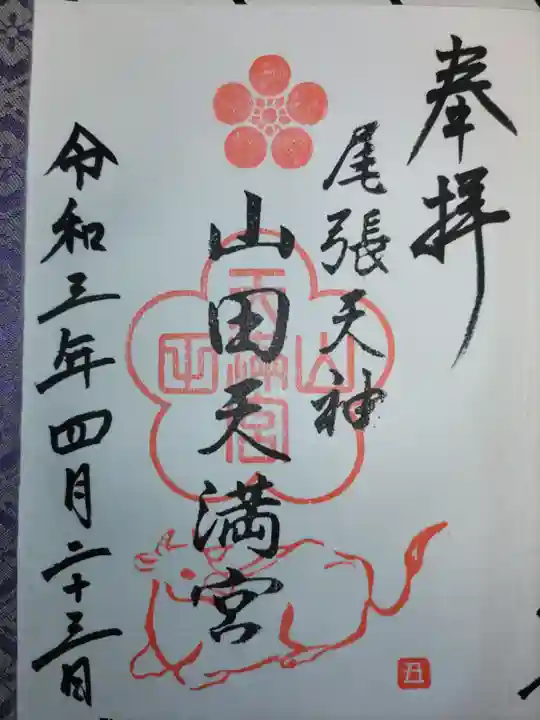 奉拝
尾張天神
山田天満宮
令和三年四月二十三日
山田
天満宮
丑